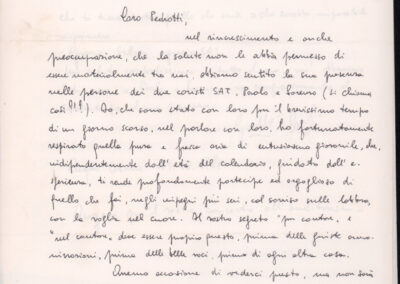 Caro Pedrotti,
nel rincrescimento e anche
preoccupazione, che la salute non le abbia permesso di
essere materialmente tra noi, abbiamo sentito la sua presenza
nelle persone dei due coristi SAT, Paolo e Lorenzo (si chiama
così?!?). Io, che sono stato con loro per il brevissimo tempo
di un giorno scarso, nel parlare con loro, ho fortunatamente
respirato quella pura e fresca aria di entusiasmo giovanile, che,
indipendentemente dall' età del calendario, guidato dall' e-
sperienza, ti rende profondamente partecipe ed orgoglioso di
quello che fai, negli impegni più seri, col sorriso sulle labbra,
con la voglia nel cuore. Il nostro segreto "per cantare, e
"nel cantare", deve essere proprio questo, prima delle giuste
prima delle belle voci, prima di ogni altra cosa.
occasione di vederci presto, ma non sarà